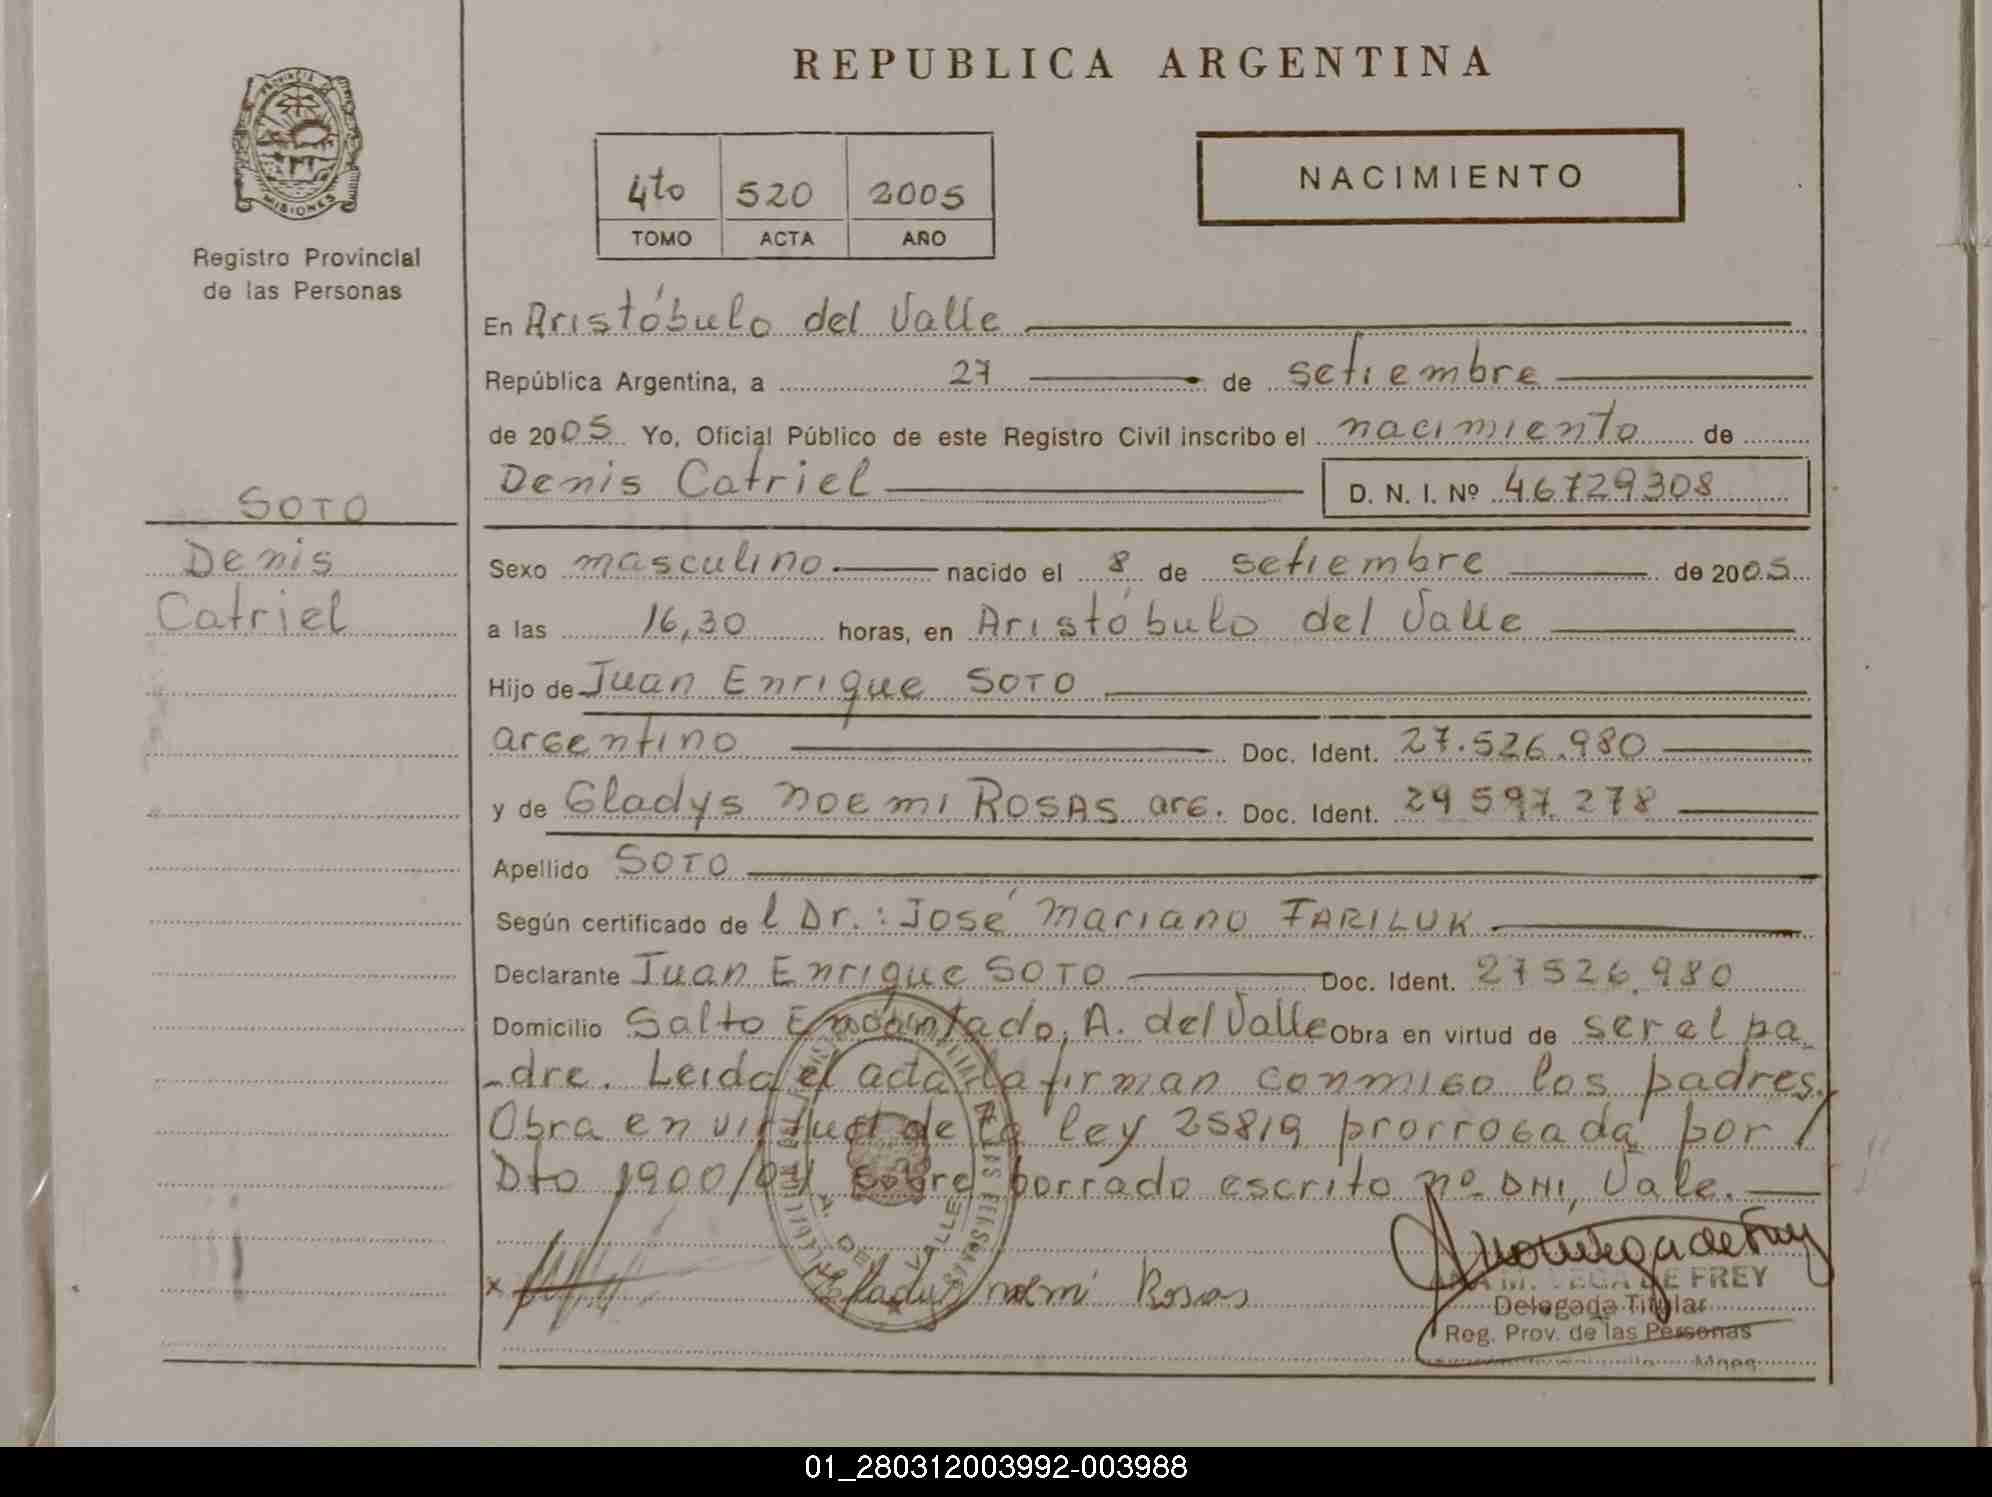 REPUBLICA ARGENTINA
PROVINCIA DE
MISIONES
Registro Provincial
de las Personas
4to 520 2005
TOMO ACTA AÑO
NACIMIENTO
En Aristóbulo del Valle
República Argentina, a 27 de setiembre
de 2005 Yo, Oficial Público de este Registro Civil inscribo el nacimiento de
Denis Catriel D. N. I. Nº 46729308
SOTO
Denis
Catriel
Sexo masculino nacido el 8 de setiembre de 2005
a las 16,30 horas, en Aristóbulo del Valle
Hijo de Juan Enrique SOTO
argentino Doc. Ident. 27.526.980
y de Gladys Noemi ROSAS arg. Doc. Ident. 29 597.278
Apellido SOTO
Según certificado de l Dr.: José Mariano FARILUK
Declarante Juan Enrique SOTO Doc. Ident. 27526.980
Domicilio Salto Encantado, A. del Valle Obra en virtud de ser el pa
-dre. Leida el acta la firman conmigo los padres.
Obra en virtud de la ley 25819 prorrogada por /
Dto 1900/04 sobre borrado escrito nº DNI, Vale.
x Gladys noemi Rosas
A. DEL VALLE
ANA M. VEGA DE FREY
Delegada Titular
Reg. Prov. de las Personas
Mnes
01_280312003992-003988